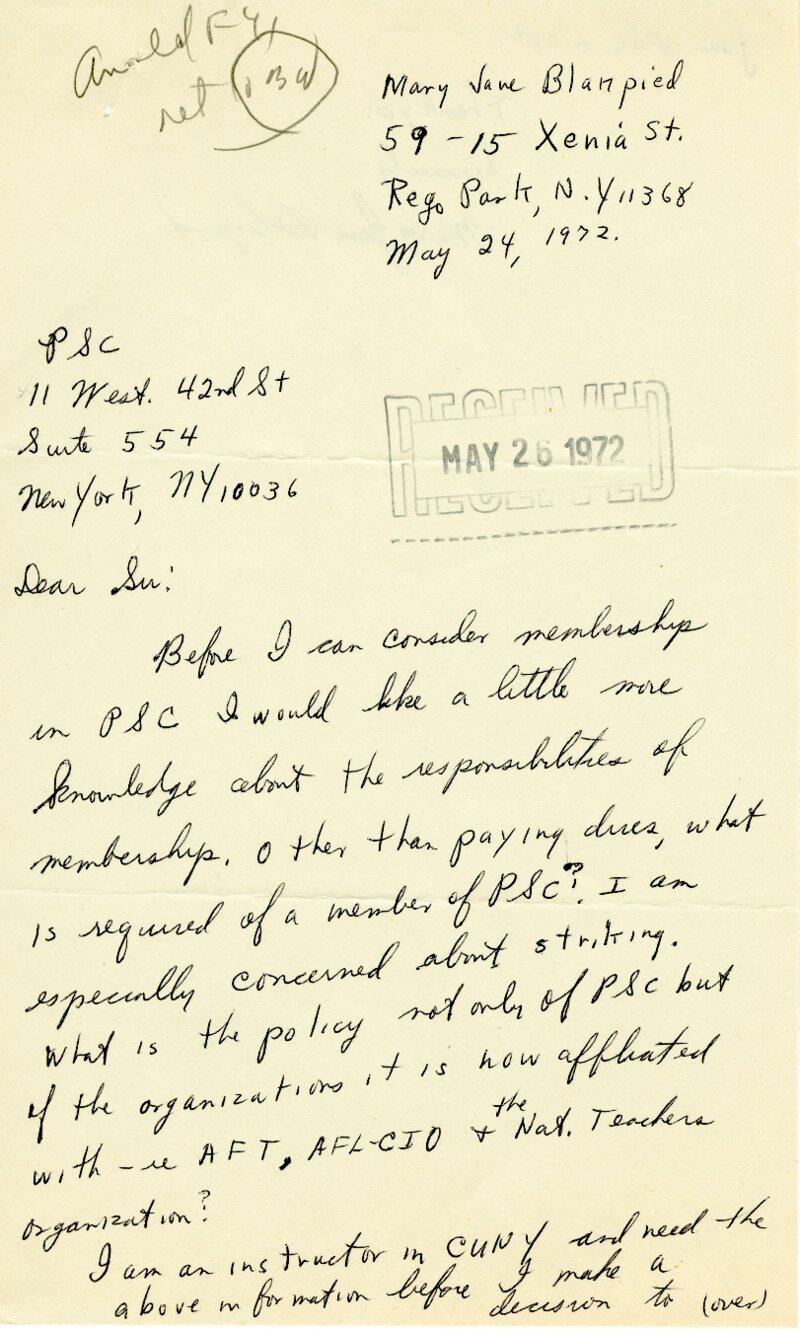 Arnold FYI
ret to BW
Mary Jane Blampied
59-15 Xenia St.
Rego Park, N.Y 11368
May 24, 1972.
PSC
11 West. 42nd St
Suite 554
New York, NY 10036
RECEIVED
MAY 26 1972
RECEIVED
Dear Sir:
Before I can consider membership
in PSC I would like a little more
knowledge about the responsibilities of
membership. Other than paying dues, what
is required of a member of PSC? I am
especially concerned about striking.
What is the policy not only of PSC but
of the organizations it is now affliated
with - ie AFT, AFL-CIO + the Nat. Teachers
organization?
I am an instructor in CUNY and need the
above information before I make a
decision to (over)